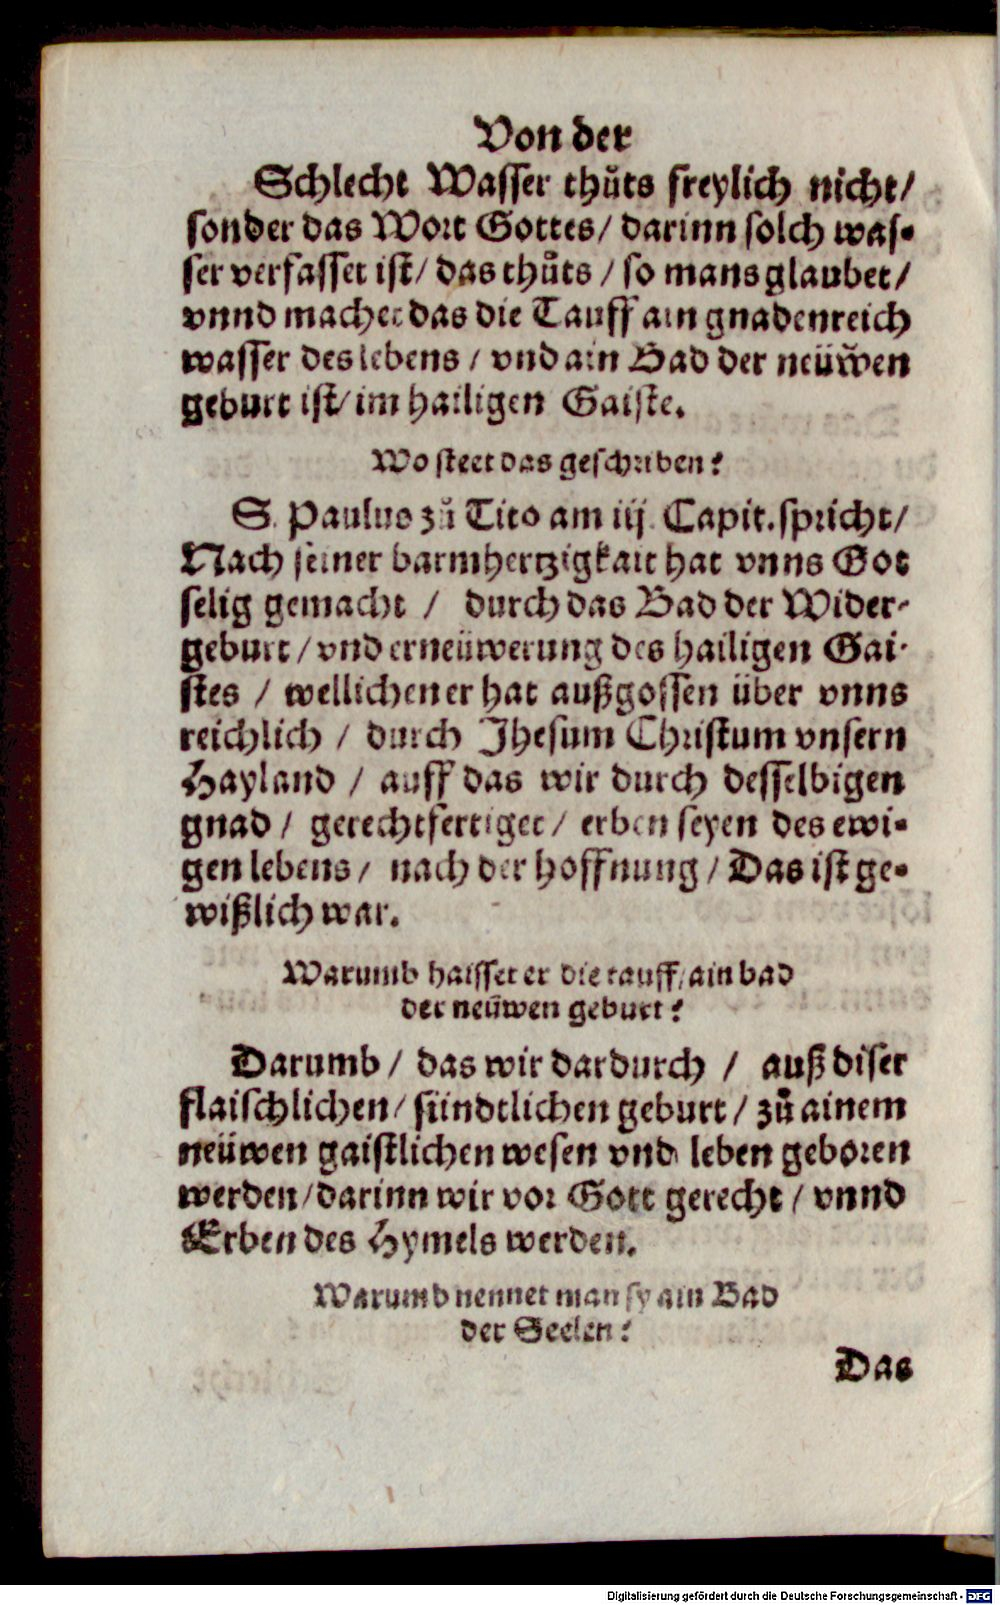 Von der
Schlecht Wasser thůts freylich nicht/
sonder das Wort Gottes/ darinn solch was-
ser verfasset ist/ das thůts / so mans glaubet/
vnnd machet das die Tauff ain gnadenreich
wasser des lebens / vnd ain Bad der neüwen
geburt ist/ im hailigen Gaiste.
Wo steet das geschriben?
S. Paulus zů Tito am iij. Capit. spricht/
Nach seiner barmhertzigkait hat vnns Got
selig gemacht / durch das Bad der Wider-
geburt / vnd erneüwerung des hailigen Gai-
stes / wellichen er hat außgossen über vnns
reichlich / durch Jhesum Christum vnsern
Hayland / auff das wir durch desselbigen
gnad / gerechtfertiget / erben seyen des ewi-
gen lebens / nach der hoffnung / Das ist ge-
wißlich war.
Warumb haisset er die tauff/ ain bad
der neüwen geburt?
Darumb / das wir dardurch / auß diser
flaischlichen/ sündtlichen geburt / zů ainem
neüwen gaistlichen wesen vnd leben geboren
werden/ darinn wir vor Gott gerecht / vnnd
Erben des Hymels werden.
Warumb nennet man sy ain Bad
der Seelen?
Das
Digitalisierung gefördert durch die Deutsche Forschungsgemeinschaft - DFG